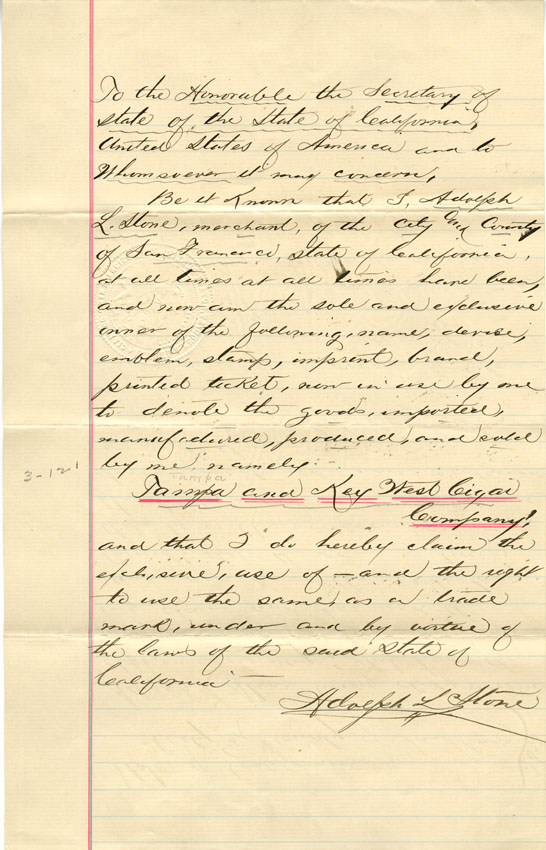 To the Honorable the Secretary of
State of the State of California,
United States of America and to
Whomsoever it may concern,
Be it Known that I, Adolph
L. Stone, merchant, of the city and County
of San Francisco, state of California,
at all times at all times have been,
and now am the sole and exclusive
owner of the following, name, devise,
emblem, stamp, imprint, brand,
printed ticket, now in use by me
to denote the goods, imported,
manufactured, produced, and sold
by me, namely:
Tampa
3-121
Tampa and Key West Cigar
Company,
and that I do hereby claim the
exclusive, use of – and the right
to use the same, as a trade
mark, under and by virtue of
the laws of the said State of
California —
Adolph L Stone